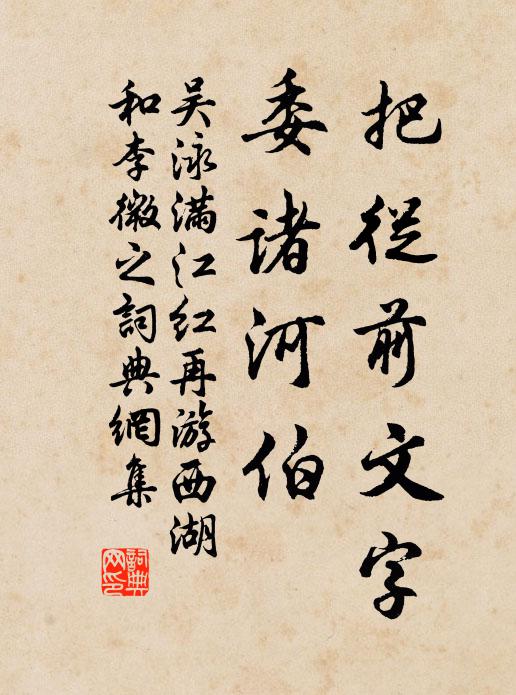 把從前文字
委諸河伯
吴泳满江红再游西湖
和李微之詞典網集
詞典网印